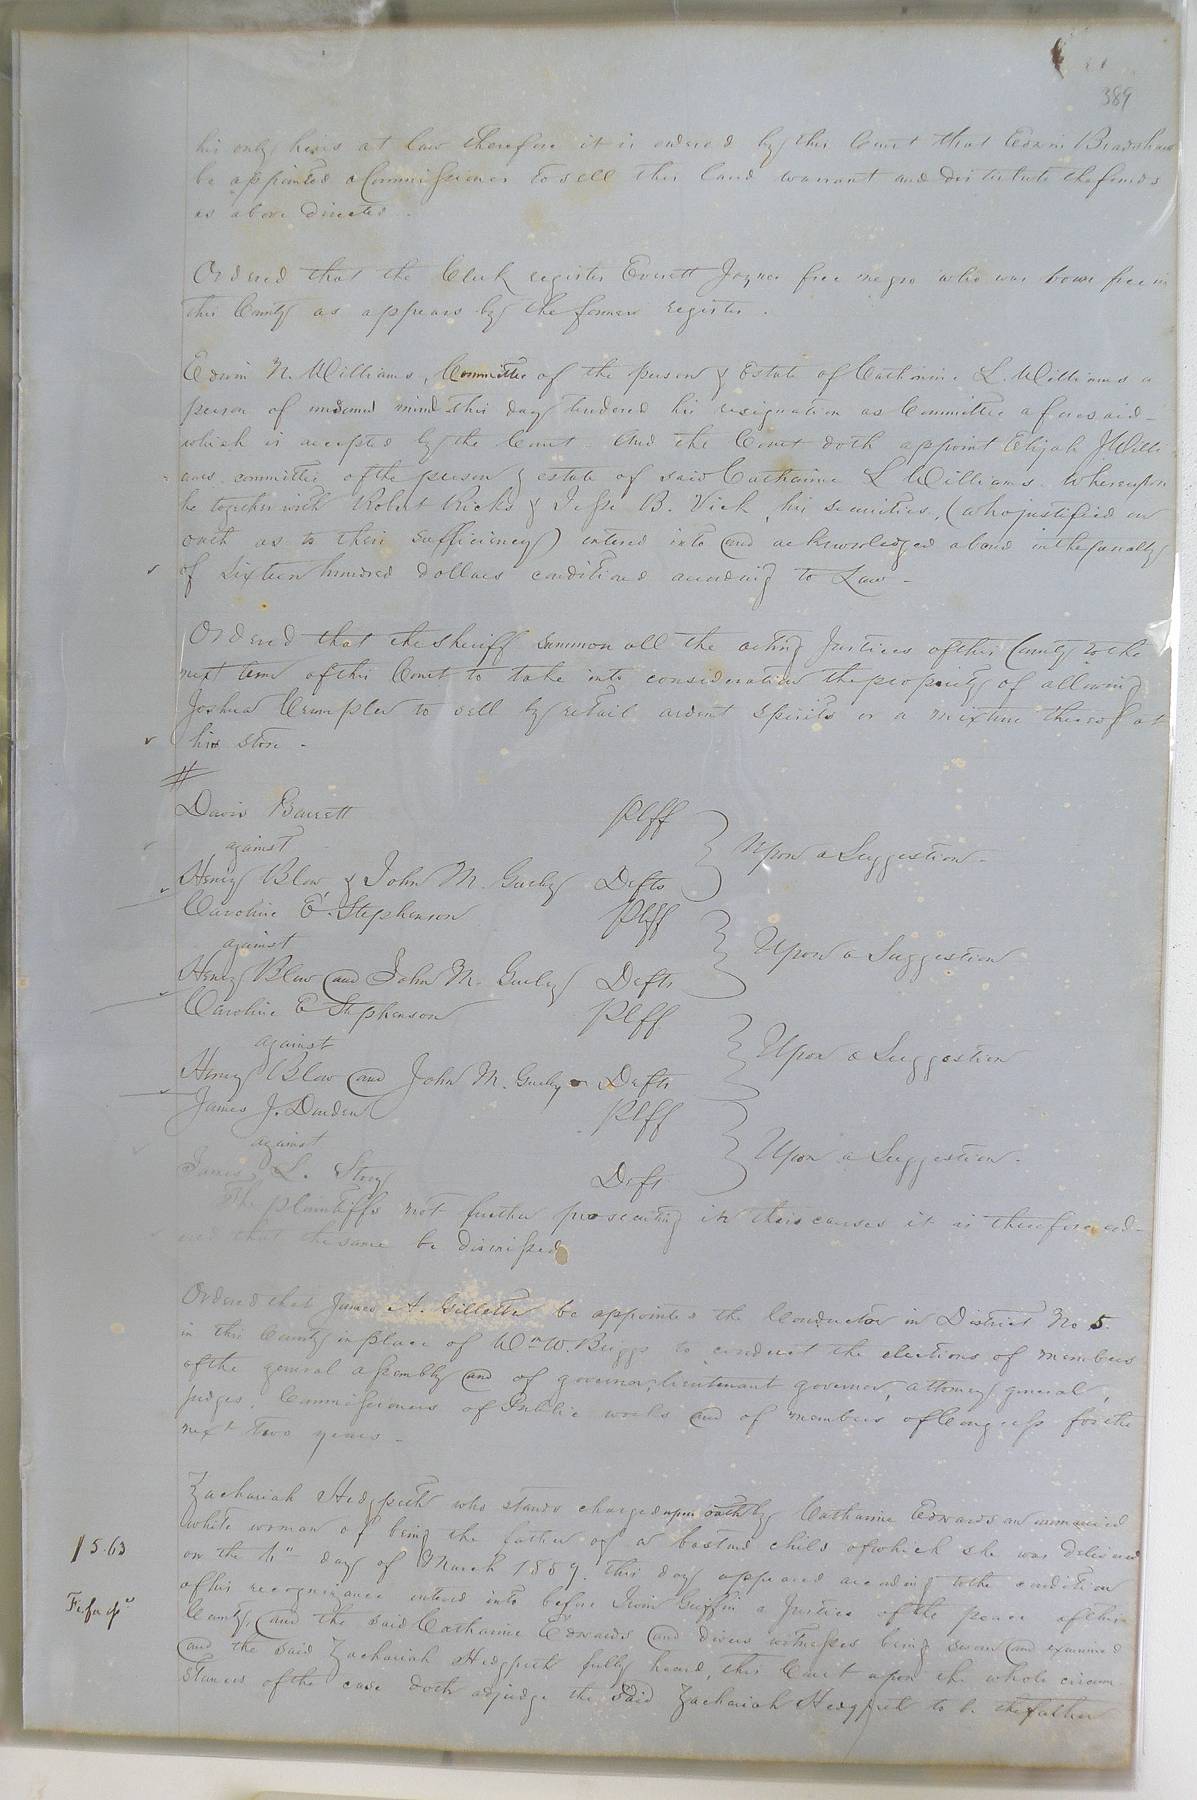 389
his only heirs at law therefore it is ordered by this Court that Edwin Bradshaw
be appointed a Commissioner to sell this land warrant and distribute the funds
as above directed.
Ordered that the Clerk register Everett Joyner free negro who was born free in
this County as appears by the former register.
Edwin N. Williams, Committee of the person & Estate of Catharine L. Williams a
person of unsound mind this day tendered his resignation as Committee aforesaid
which is accepted by the Court. And the Court doth appoint Elijah J Willi
ams committee of the person & estate of said Catharine L Williams. Whereupon
he together with Robert Ricks & Jesse B. Vick, his securities, (who justified on
oath as to their sufficiency) entered into and acknowledged a bond in the penalty
of Sixteen hundred dollars conditioned according to Law -
Ordered that the sheriff summon all the acting Justices of this County to the
next term of this Court to take into consideration the propriety of allowing
Joshua Crumpler to sell by retail ardent spirits or a mixture thereof at
his store -
Davis Barrett Plff
against Upon a Suggestion -
Henry Blow & John M. Gurley Defts
Caroline E. Stephenson Plff
against Upon a Suggestion
Henry Blow and John M. Gurley Defts
Caroline E Stephenson Plff
against Upon a Suggestion
Henry Blow and John M. Gurley Defts
James J. Darden Plff
against Upon a Suggestion -
James L. Story Deft
The plaintiffs not further prosecuting in their causes it is therefore ord-
ered that the same be dismissed
Ordered that James A. Gillette be appointed the Conductor in District No 5.
in this County in place of Wm W. Briggs to conduct the elections of members
of the general assembly and of governor, lieutenant governor, attorney general,
judges, Commissioners of Public works and of members of Congress for the
next two years -
Zachariah Hedgpeth who stands charged upon oath by Catharine Edwards an unmarried
white woman of being the father of a bastard child of which she was delivered
on the 4th day of March 1859, this day appeared according to the condition
of his recognizance entered into before Irvin Griffin a Justice of the peace of this
County, and the said Catharine Edwards and divers witnesses being sworn and examined
and the said Zachariah Hedgpeth fully heard, this Court upon the whole circum
stances of the case doth adjudge the said Zachariah Hedgpeth to be the father
15.63